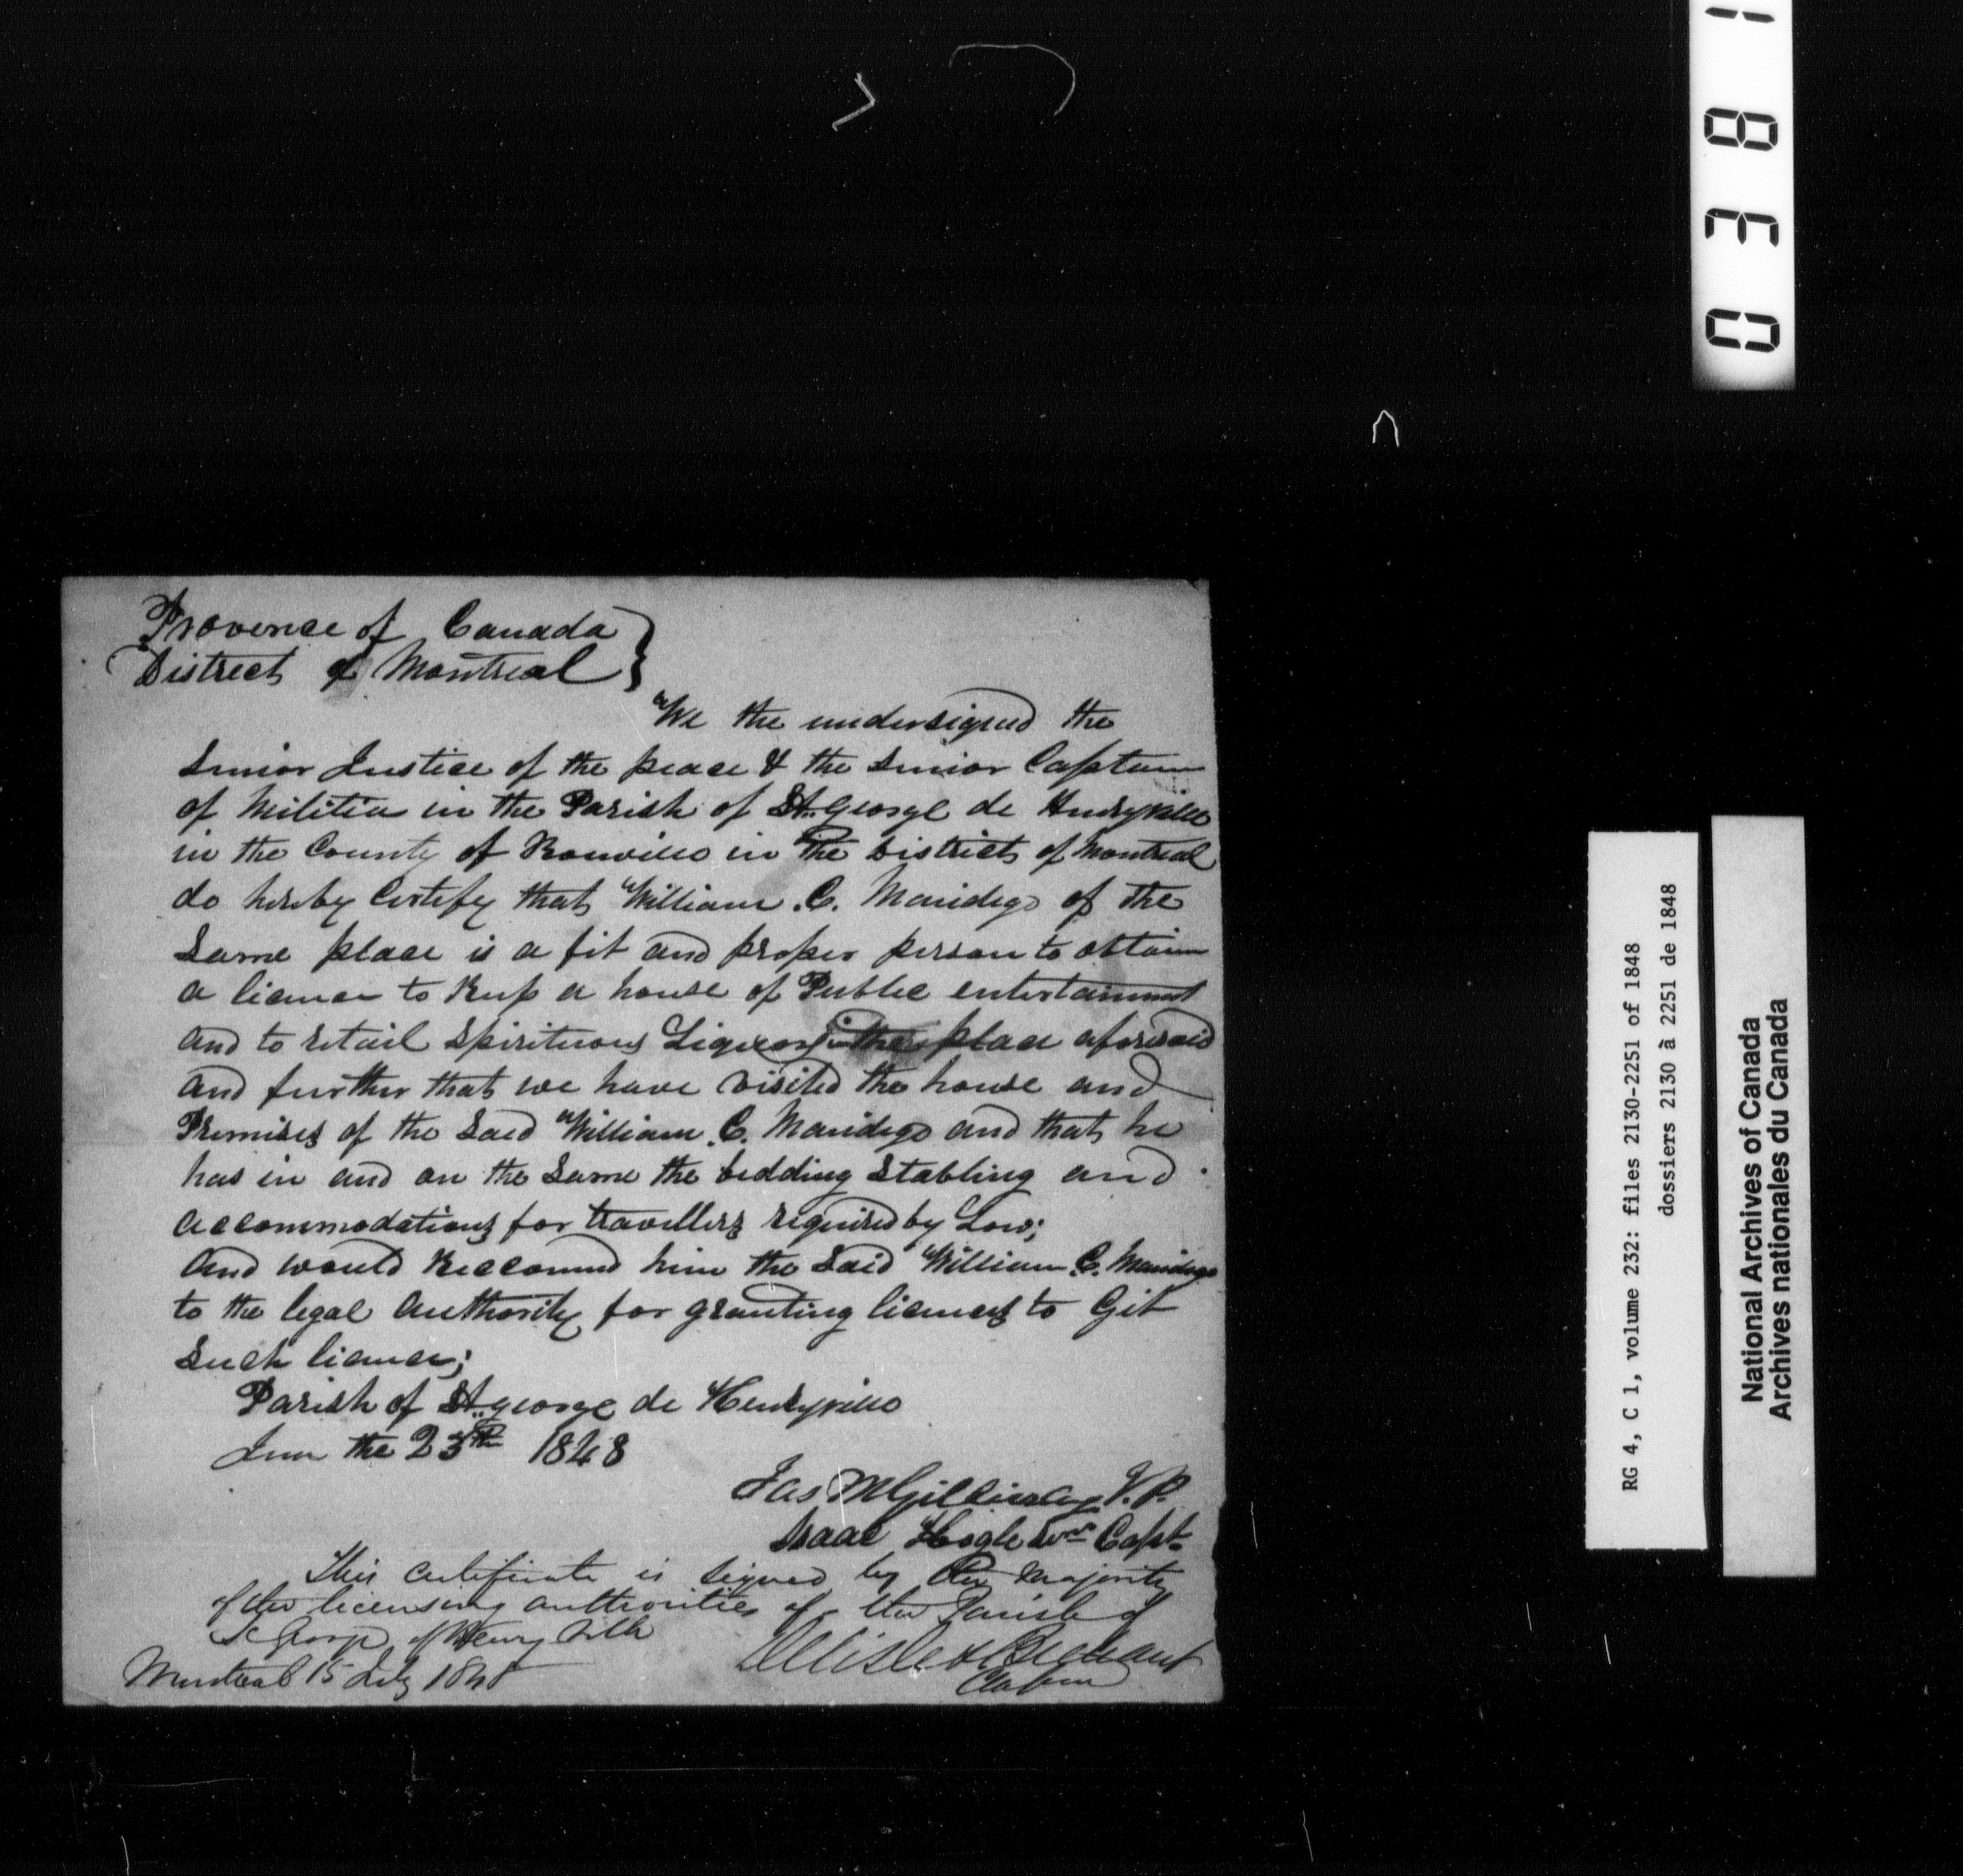 Provence of Canada
District of Montreal
We the undersigned the
Senior Justice of the peace & the Senior Captain
of Militia in the Parish of St. George de Henryville
in the County of Rouville in the District of Montreal
do hereby Certify that William C. Mandigo of the
Same place is a fit and proper person to obtain
a licence to Keep a house of Public entertainment
and to retail Spirituous Liquors in the place aforesaid
and further that we have visited the house and
Premises of the Said William C. Mandigo and that he
has in and on the Same the bedding Stabling and
accommodations for travellers required by Law;
And would Reccomend him the Said William C. Mandigo
to the legal authority for granting licences to Git
Such licence;
Parish of St. george de Henryville
June the 23th 1848
Jas McGillivray J.P.
Isaac Hogle Snr Capt
This certificate is signed by the majority
of the licensing authorities of the Parish of
St George of Henryville
Delisle & Brehaut
Montreal 15 July 1848
0381
RG 4, C 1, volume 232: files 2130-2251 of 1848
dossiers 2130 à 2251 de 1848
National Archives of Canada
Archives nationales du Canada